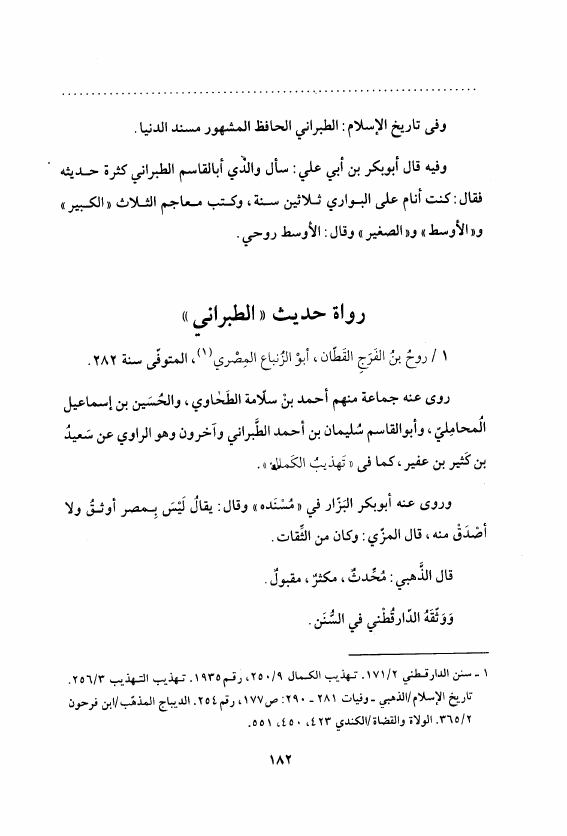 وفى تاريخ الإسلام : الطبراني الحافظ المشهور مسند الدنيا .
وفيه قال أبوبكر بن أبي علي : سأل والدّي أبالقاسم الطبراني كثرة حـديثه
فقال : كنت أنام على البـواري ثـلاثين سـنة ، وكـتب مـعاجم الثـلاث «الكـبير»
و«الأوسط» و«الصغير» وقال : الأوسط روحي .
رواة حديث «الطبراني»
١ / روحُ بنُ الفَرَجِ القَطّان ، أبوُ الزُنباع المِصْري(١)، المتوفّى سنة ٢٨٢ .
روى عنه جماعة منهم أحمد بنْ سلّامة الطَحْاوي ، والحُسَين بن إسماعيل
الُمحامِليّ ، وأبوالقاسم سُليمان بن أحمد الطَّبراني وآخرون وهو الراوي عن سَعيدُ
بن كَثير بن عفير ، كما فى «تَهذيبُ الكمال» .
وروى عنه أبوبكر البَزّار في «مُسْنَده» وقال : يقالُ لَيْسَ بِـمصر أوثـقُ ولا
أصْدَقْ منه ، قال المزّي : وكان من الثِّقات .
قال الذَّهبي : مُحُدثٌ ، مكثرٌ ، مقبولٌ .
وَوَثِّقَهُ الدّارقُطْني في السُّنَن .
١ ـ سنن الدارقـطني ١٧١/٢. تـهذيب الكـمال ٢٥٠/٩، رقـم ١٩٣٥. تـهذيب التـهذيب ٢٥٦/٣.
تاريخ الإسلام/الذهبي ـ وفيات ٢٨١ ـ ٢٩٠: ص١٧٧، رقم ٢٥٤. الديباج المذهّب/ابن فرحون
٣٦٥/٢. الولاة والقضاة/الكندي ٤٢٣، ٤٥٠، ٥٥١.
١٨٢